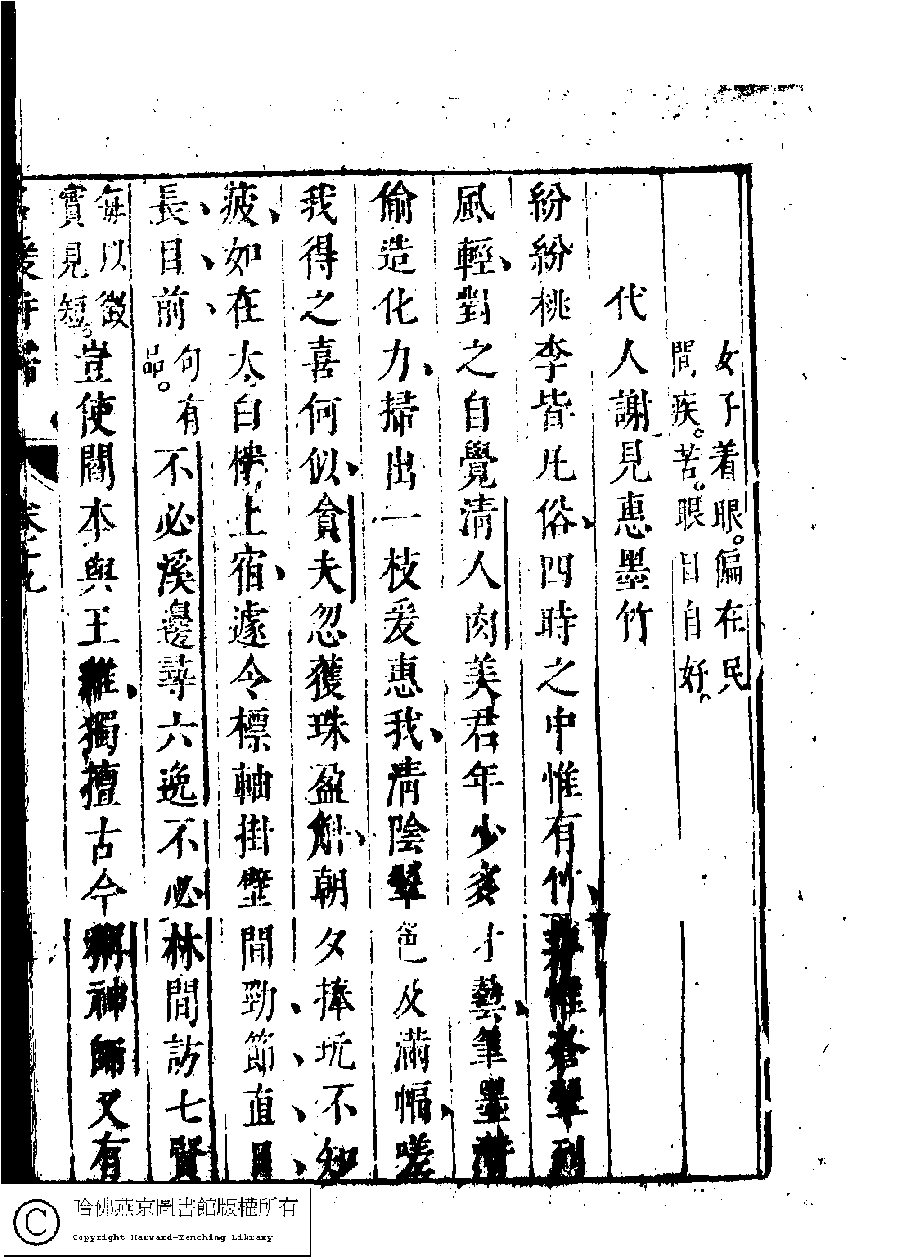 女子着眼。偏在民
間疾。苦。眼目自好。
代人謝見惠墨竹
紛紛桃李皆凡俗、四時之中惟有竹、不惟蒼翠到
風輕、對之自覺清人肉美君年少多才藝、筆墨潛
偷造化力、掃出一枝爰惠我、清陰翠色及滿幅、嗟
我得之喜何似、貪夫忽獲珠盈斛、朝夕捧玩不知
疲、如在太白樓上宿、遽令標軸掛壁間勁、節、直、目、
長、目、前、句有
品。不必溪邊尋六逸不必林間訪七賢
每以徵
實見短。豈使閻本與王維、獨擅古今稱神師又有
卷十九
哈佛燕京圖書館版權所有
Copyright Harvard-Yenching Library